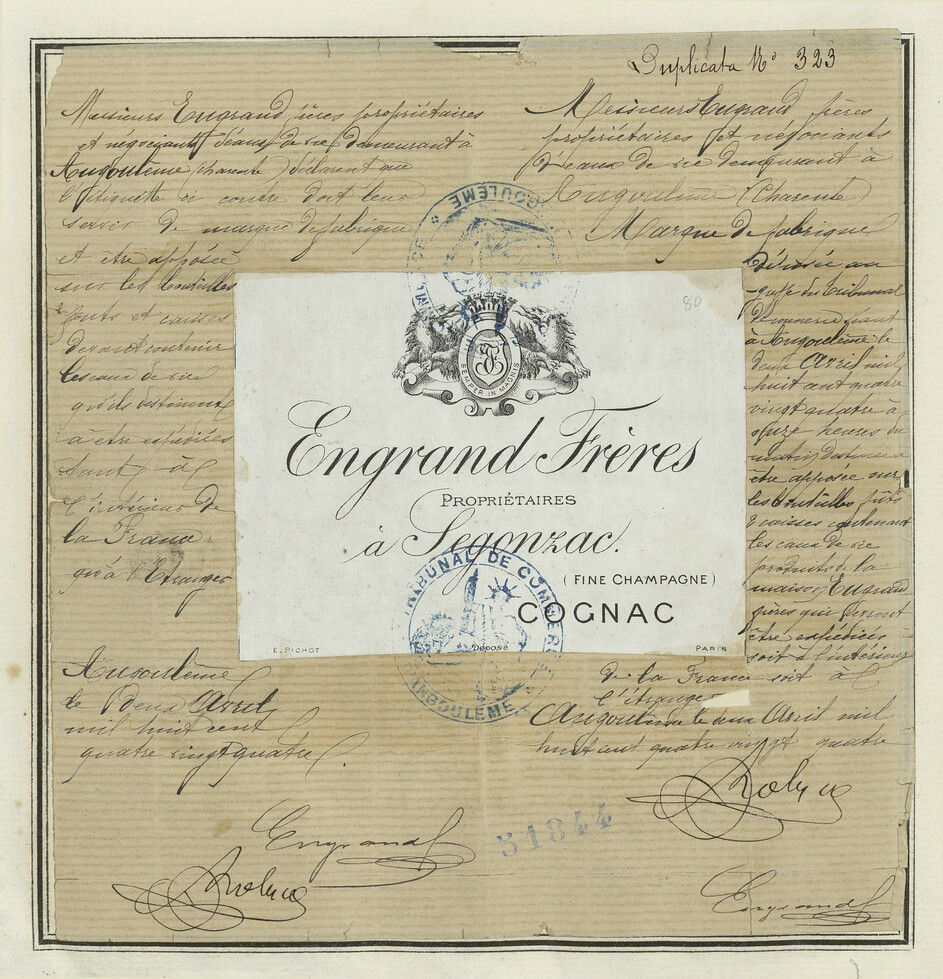 Duplicata N° 323
Messieurs Engrand frères propriétaires
et négociants d'eaux de vie demeurant à
Angoulême, Charente, déclarent que
l'Etiquette ci contre doit leur
servir de marque de fabrique
et être apposée
sur les bouteilles
futs et caisses
devant contenir
les eaux de vie
qu'ils destinent
à être expédiées
tant à
l'intérieur de
la France
qu'à l'Etranger
Angoulême
le Deux Avril
mil huit cent
quatre vingt quatre.
Engrand
Messieurs Engrand frères
propriétaires et négociants
d'eaux de vie demeurant à
Angoulême (Charente)
Marque de fabrique
déposée au
greffe du Tribunal
de commerce séant
à Angoulême le
deux Avril mil
huit cent quatre
vingt quatre à
onze heures du
matin, destinée à
être apposée sur
les bouteilles, futs
& caisses contenant
les eaux de vie
produits de la
maison Engrand
frères qui devront
être expédiées
soit à l'intérieur
de la France soit à
l'étranger
Angoulême le deux Avril mil
huit cent quatre vingt quatre
Engrand
80
SEMPER IN MAGNIS
Engrand Frères
PROPRIÉTAIRES
à Segonzac.
(FINE CHAMPAGNE)
COGNAC
E. PICHOT
Déposé
PARIS
ANGOULÊME
TRIBUNAL DE COMMERCE
ANGOULÊME
51844